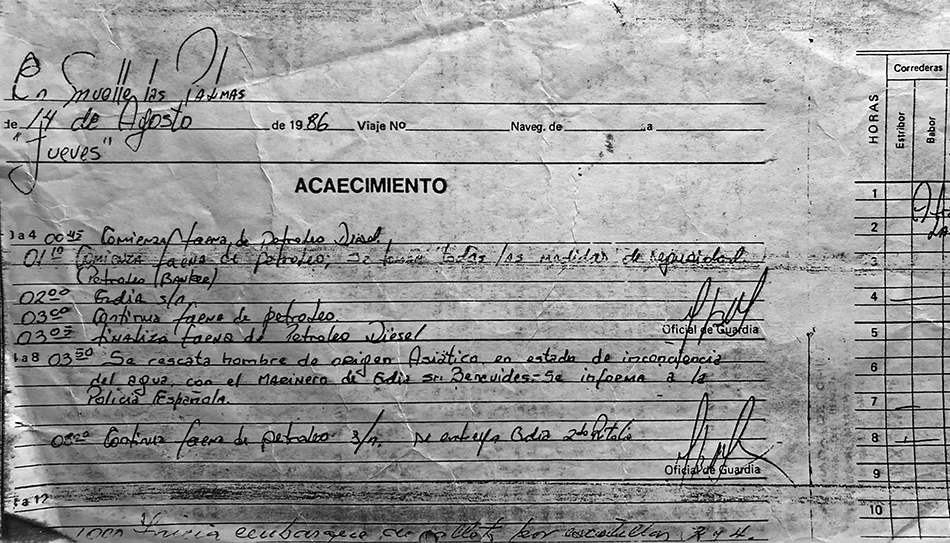 En muelle las Palmas
de 14 de Agosto de 1986 Viaje No Naveg. de a
"Jueves"
ACAECIMIENTO
1 a 4 00 45 Comienza faena de Petroleo Diesel,
01 10 Comienza faena de petroleo; Se toman todas las medidas de seguridad
(Petroleo (Bunker)
02 00 Grdia s/n.
03 00 Continua faena de petroleo.
Oficial de Guardia
03 05 finaliza faena de Petroleo Diesel
4 a 8 03 50 Se rescata hombre de origen Asiático, en estado de inconciencia
del agua, con el marinero de Grdia sr. Benevides- Se informa a la
Policia Española.
Continua faena de petroleo s/n. se entrega Grdia
Oficial de Guardia
a 12
inicia embarque de por escotillas 3 y 4.
HORAS
Correderas
Estribor
Babor
1
2
3
4
5
6
7
8
9
10